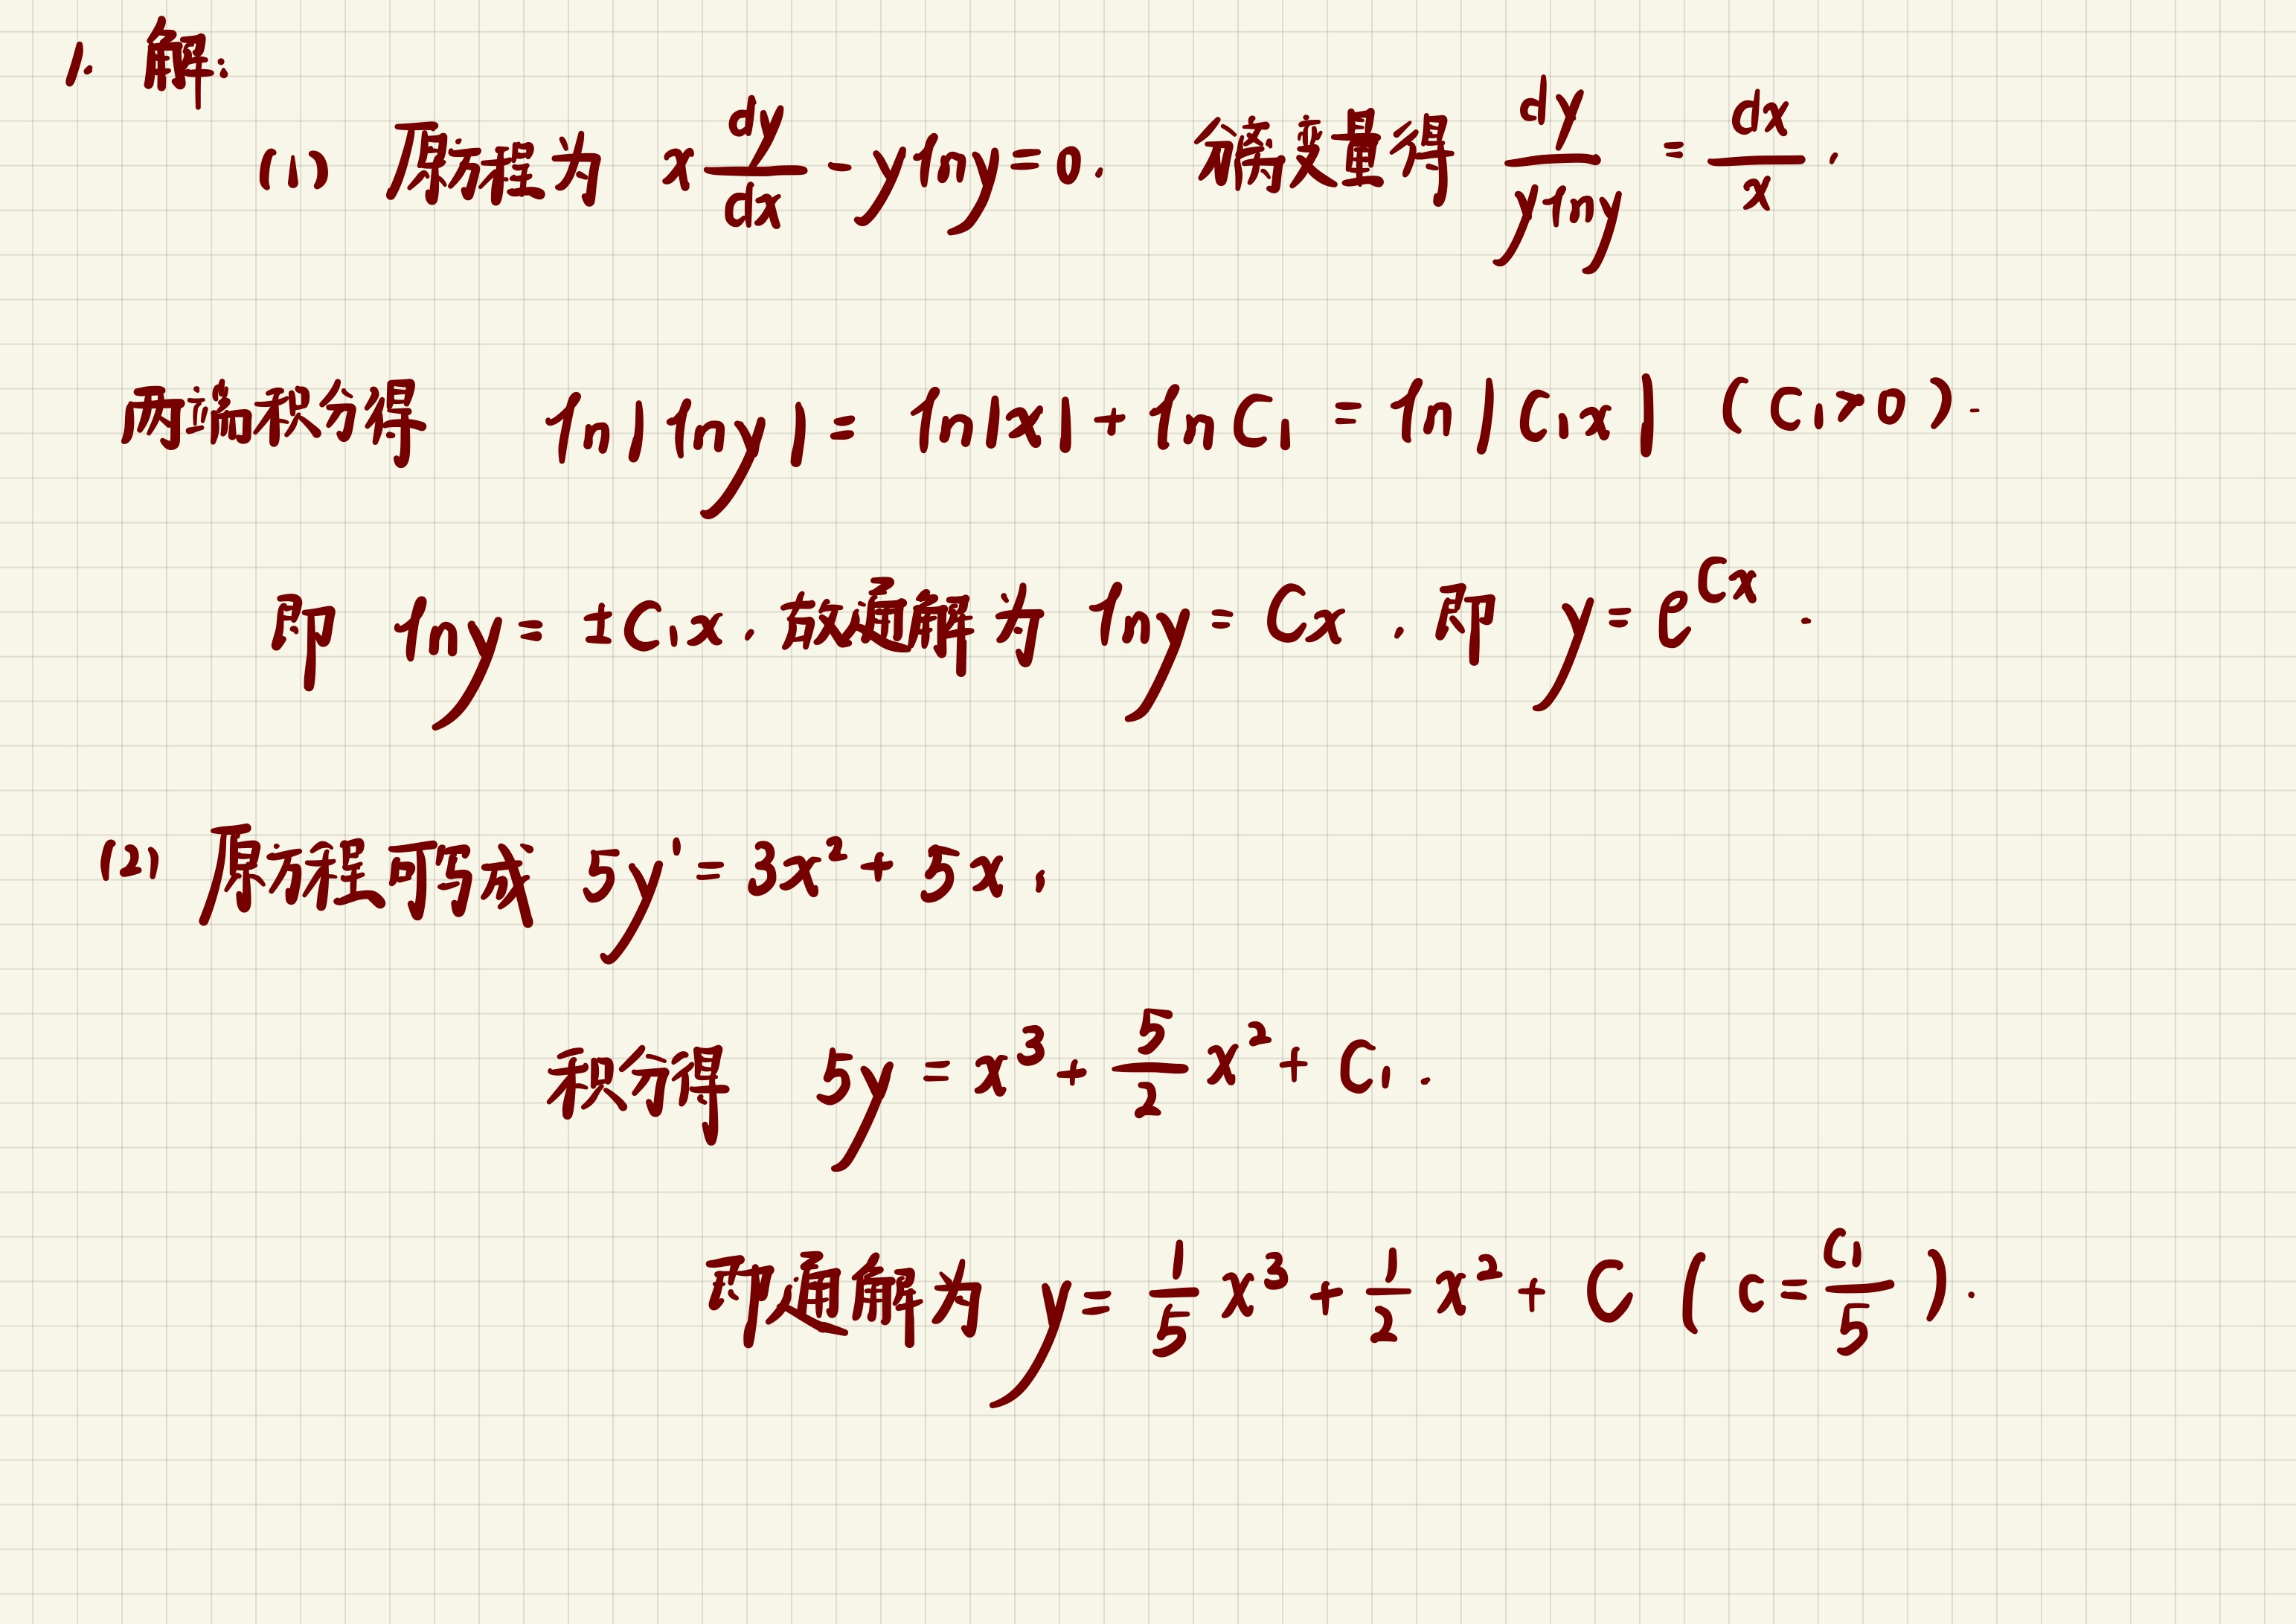 1. 解:
(1) 原方程为 x dy/dx - y ln y = 0. 分离变量得 dy/(y ln y) = dx/x,
两端积分得 ln|ln y| = ln|x| + ln C₁ = ln|C₁x| (C₁>0).
即 ln y = ±C₁x. 故通解为 ln y = Cx. 即 y = e^{Cx}.
(2) 原方程可写成 5y' = 3x² + 5x,
积分得 5y = x³ + 5/2 x² + C₁.
即通解为 y = 1/5 x³ + 1/2 x² + C (C = C₁/5).